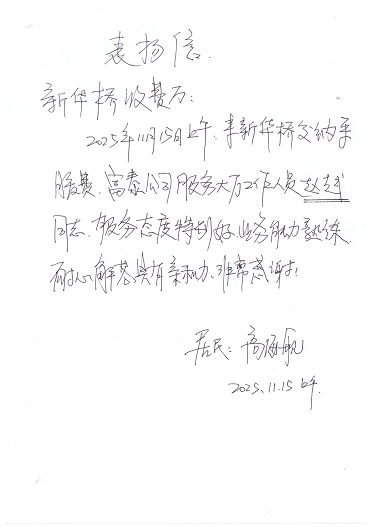 表扬信.
新华桥收费厅:
2025年11月15日上午,来新华桥交纳采
暖费,富泰公司服务大厅工作人员赵越
同志,服务态度特别好,业务能力熟练,
耐心解答,具有亲和力,非常感谢!
居民:高海帆
2025.11.15上午.